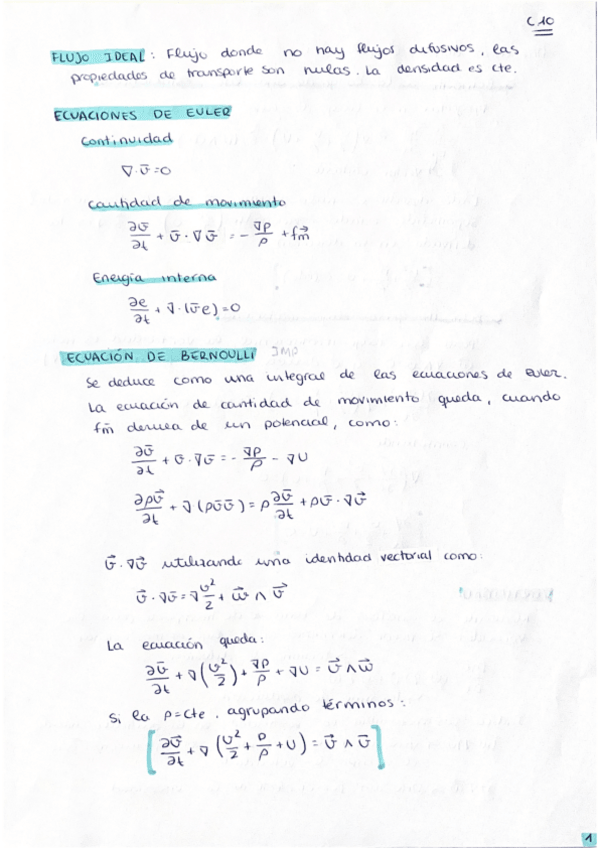 C10
FLUJO IDEAL: Flujo donde no hay flujos difusivos, las
propiedades de transporte son nulas. La densidad es cte.
ECUACIONES DE EULER
Continuidad
∇·v̄=0
Cantidad de movimiento
∂v̄/∂t + v̄·∇v̄ = -∇P/ρ + fm⃗
Energía interna
∂e/∂t + ∇·(v̄e)=0
ECUACIÓN DE BERNOULLI IMP
Se deduce como una integral de las ecuaciones de Euler.
La ecuación de cantidad de movimiento queda, cuando
fm̄ deriva de un potencial, como:
∂v̄/∂t + v̄·∇v̄ = -∇P/ρ - ∇U
∂ρv⃗/∂t + ∇(ρv̄v̄) = ρ∂v⃗/∂t + ρv̄·∇v⃗
v⃗·∇v⃗ utilizando una identidad vectorial como:
v⃗·∇v̄ = ∇v²/2 + w⃗ ∧ v⃗
La ecuación queda:
∂v̄/∂t + ∇(v²/2) + ∇P/ρ + ∇U = v⃗ ∧ w⃗
Si la ρ=cte, agrupando términos:
[∂v̄/∂t + ∇(v²/2 + P/ρ + U) = v⃗ ∧ v⃗]
1